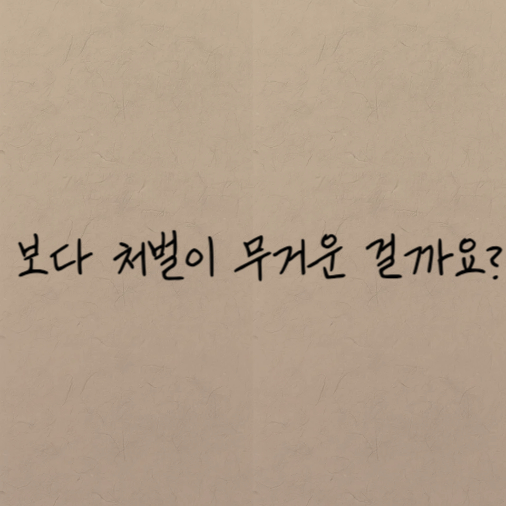 보다 처벌이 무거운 걸까요?